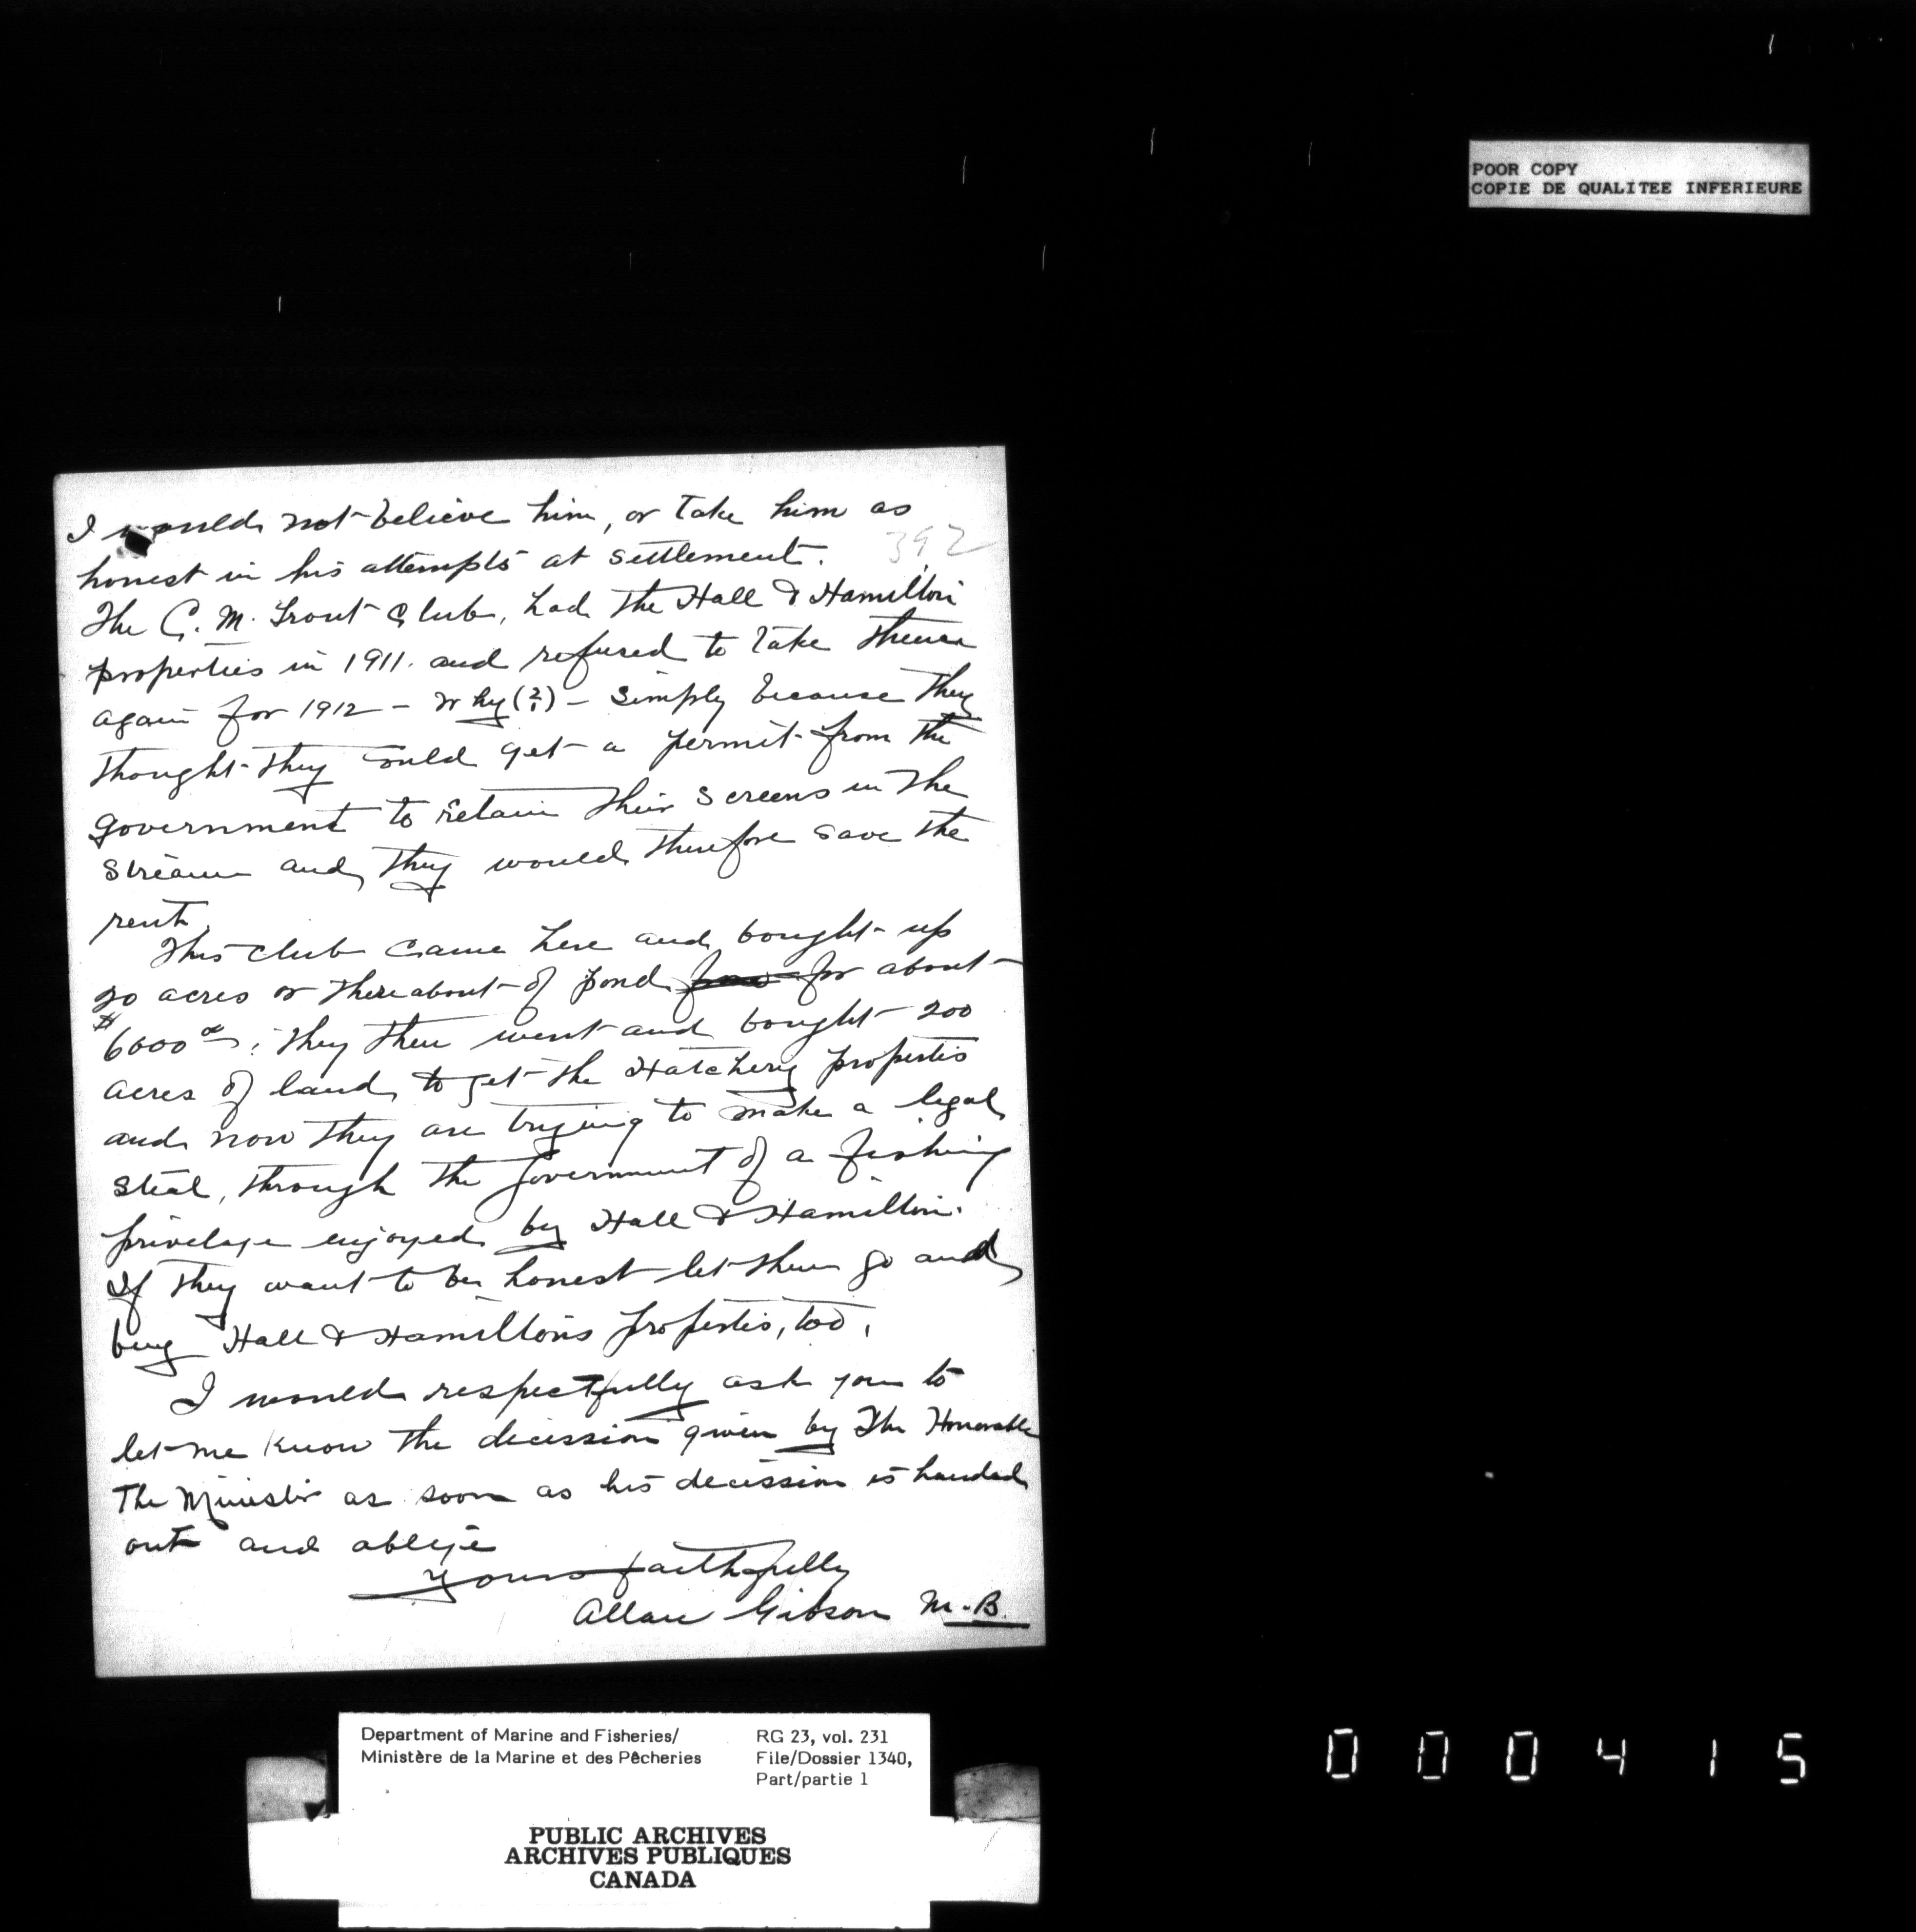 POOR COPY
COPIE DE QUALITEE INFERIEURE
392
I would not believe him, or take him as
honest in his attempts at settlement.
The C. M. Trout Club, had the Hall & Hamilton
properties in 1911. and refused to take them
again for 1912 - why (?) - simply because they
thought they could get a permit from the
government to retain their screens in the
stream and they would therefore save the
rent.
This club came here and bought up
20 acres or thereabout of pond for about
$6000 00; they then went and bought 200
acres of land to get the Hatchery propertis
and now they are trying to make a legal
steal, through the Government of a fishing
privelage enjoyed by Hall & Hamilton.
If they want to be honest let them go and
buy Hall & Hamilton's propertis, too.
I would respectfully ask you to
let me know the decission given by The Honorable
The Minister as soon as his decission is handed
out and oblige
Yours faithfully
Allan Gibson M.B.
Department of Marine and Fisheries/
Ministère de la Marine et des Pêcheries
RG 23, vol. 231
File/Dossier 1340,
Part/partie 1
PUBLIC ARCHIVES
ARCHIVES PUBLIQUES
CANADA
000415